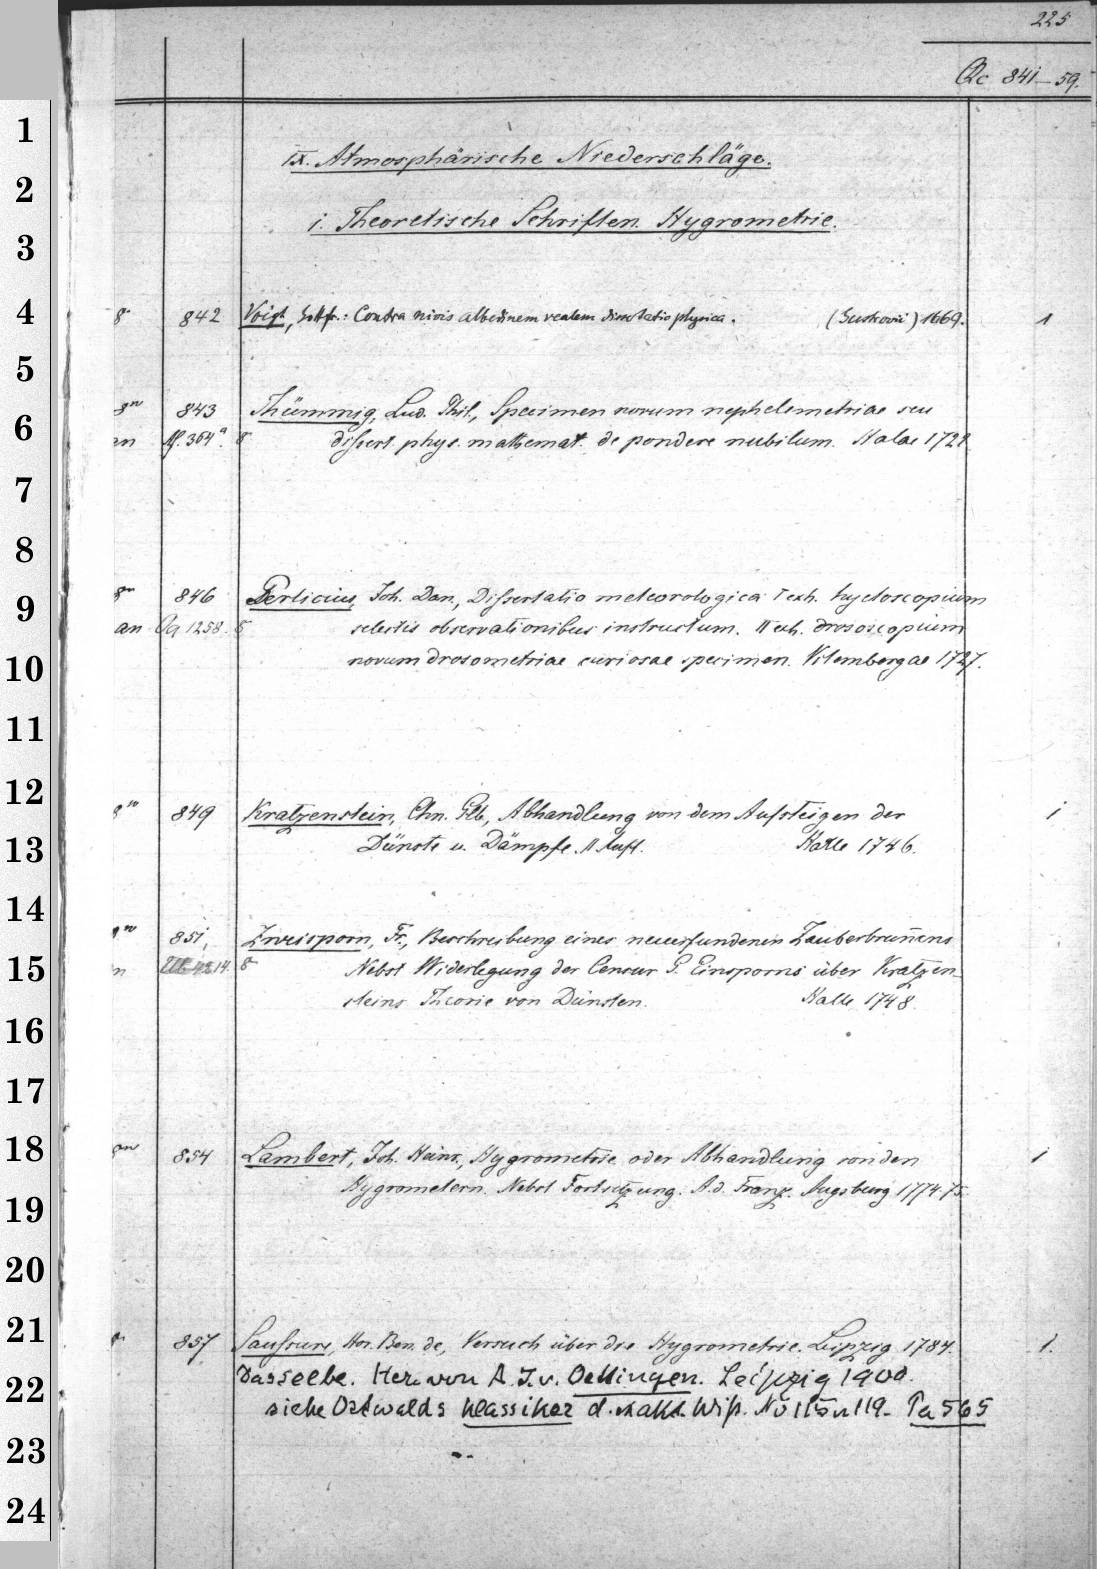 225
Qc 841-59.
IX. Atmosphärische Niederschläge.
1. Theoretische Schriften. Hygrometrie.
8° 842 Voigt, Gottfr.: Contra nivis albedinem realem dissertatio physica. (Gustrovii) 1669. 1
8° 843 Thümmig, Lud. Phil., Specimen novum nephelemetriae seu
an 8 dissert. phys. mathemat. de pondere nubilum. Halae 1722
846 Perlicius, Joh. Dan., Dissertatio meteorologica I exh. hyetoscopium
an Qa 1258. 8 selectis observationibus instructum. II exh. drososcopium
novum drosometriae curiosae specimen. Vitembergae 1727.
8° 849 Kratzenstein, Chn. Glb., Abhandlung von dem Aufsteigen der 1
Dünste u. Dämpfe. II Aufl. Halle 1746.
851, Zweisporn, Fr., Beschreibung eines neuerfundenen Zauberbrun̄ens
8 Nebst Widerlegung der Censur G. Einsporns über Kratzen-
steins Theorie von Dünsten. Halle 1748.
854 Lambert, Joh. Heinr., Hygrometrie oder Abhandlung von den 1
Hygrometern. Nebst Fortsetzung. A. d. Franz. Augsburg 1774-75.
857 Saussure, Hor. Ben. de, Versuch über die Hygrometrie. Leipzig 1784. 1.
Dasselbe. Her. von A. J. v. Oettingen. Leipzig 1900.
siehe Ostwalds Klassiker d. exakt. Wiss. No 115 u 119. Pa 565
1
2
3
4
5
6
7
8
9
10
11
12
13
14
15
16
17
18
19
20
21
22
23
24